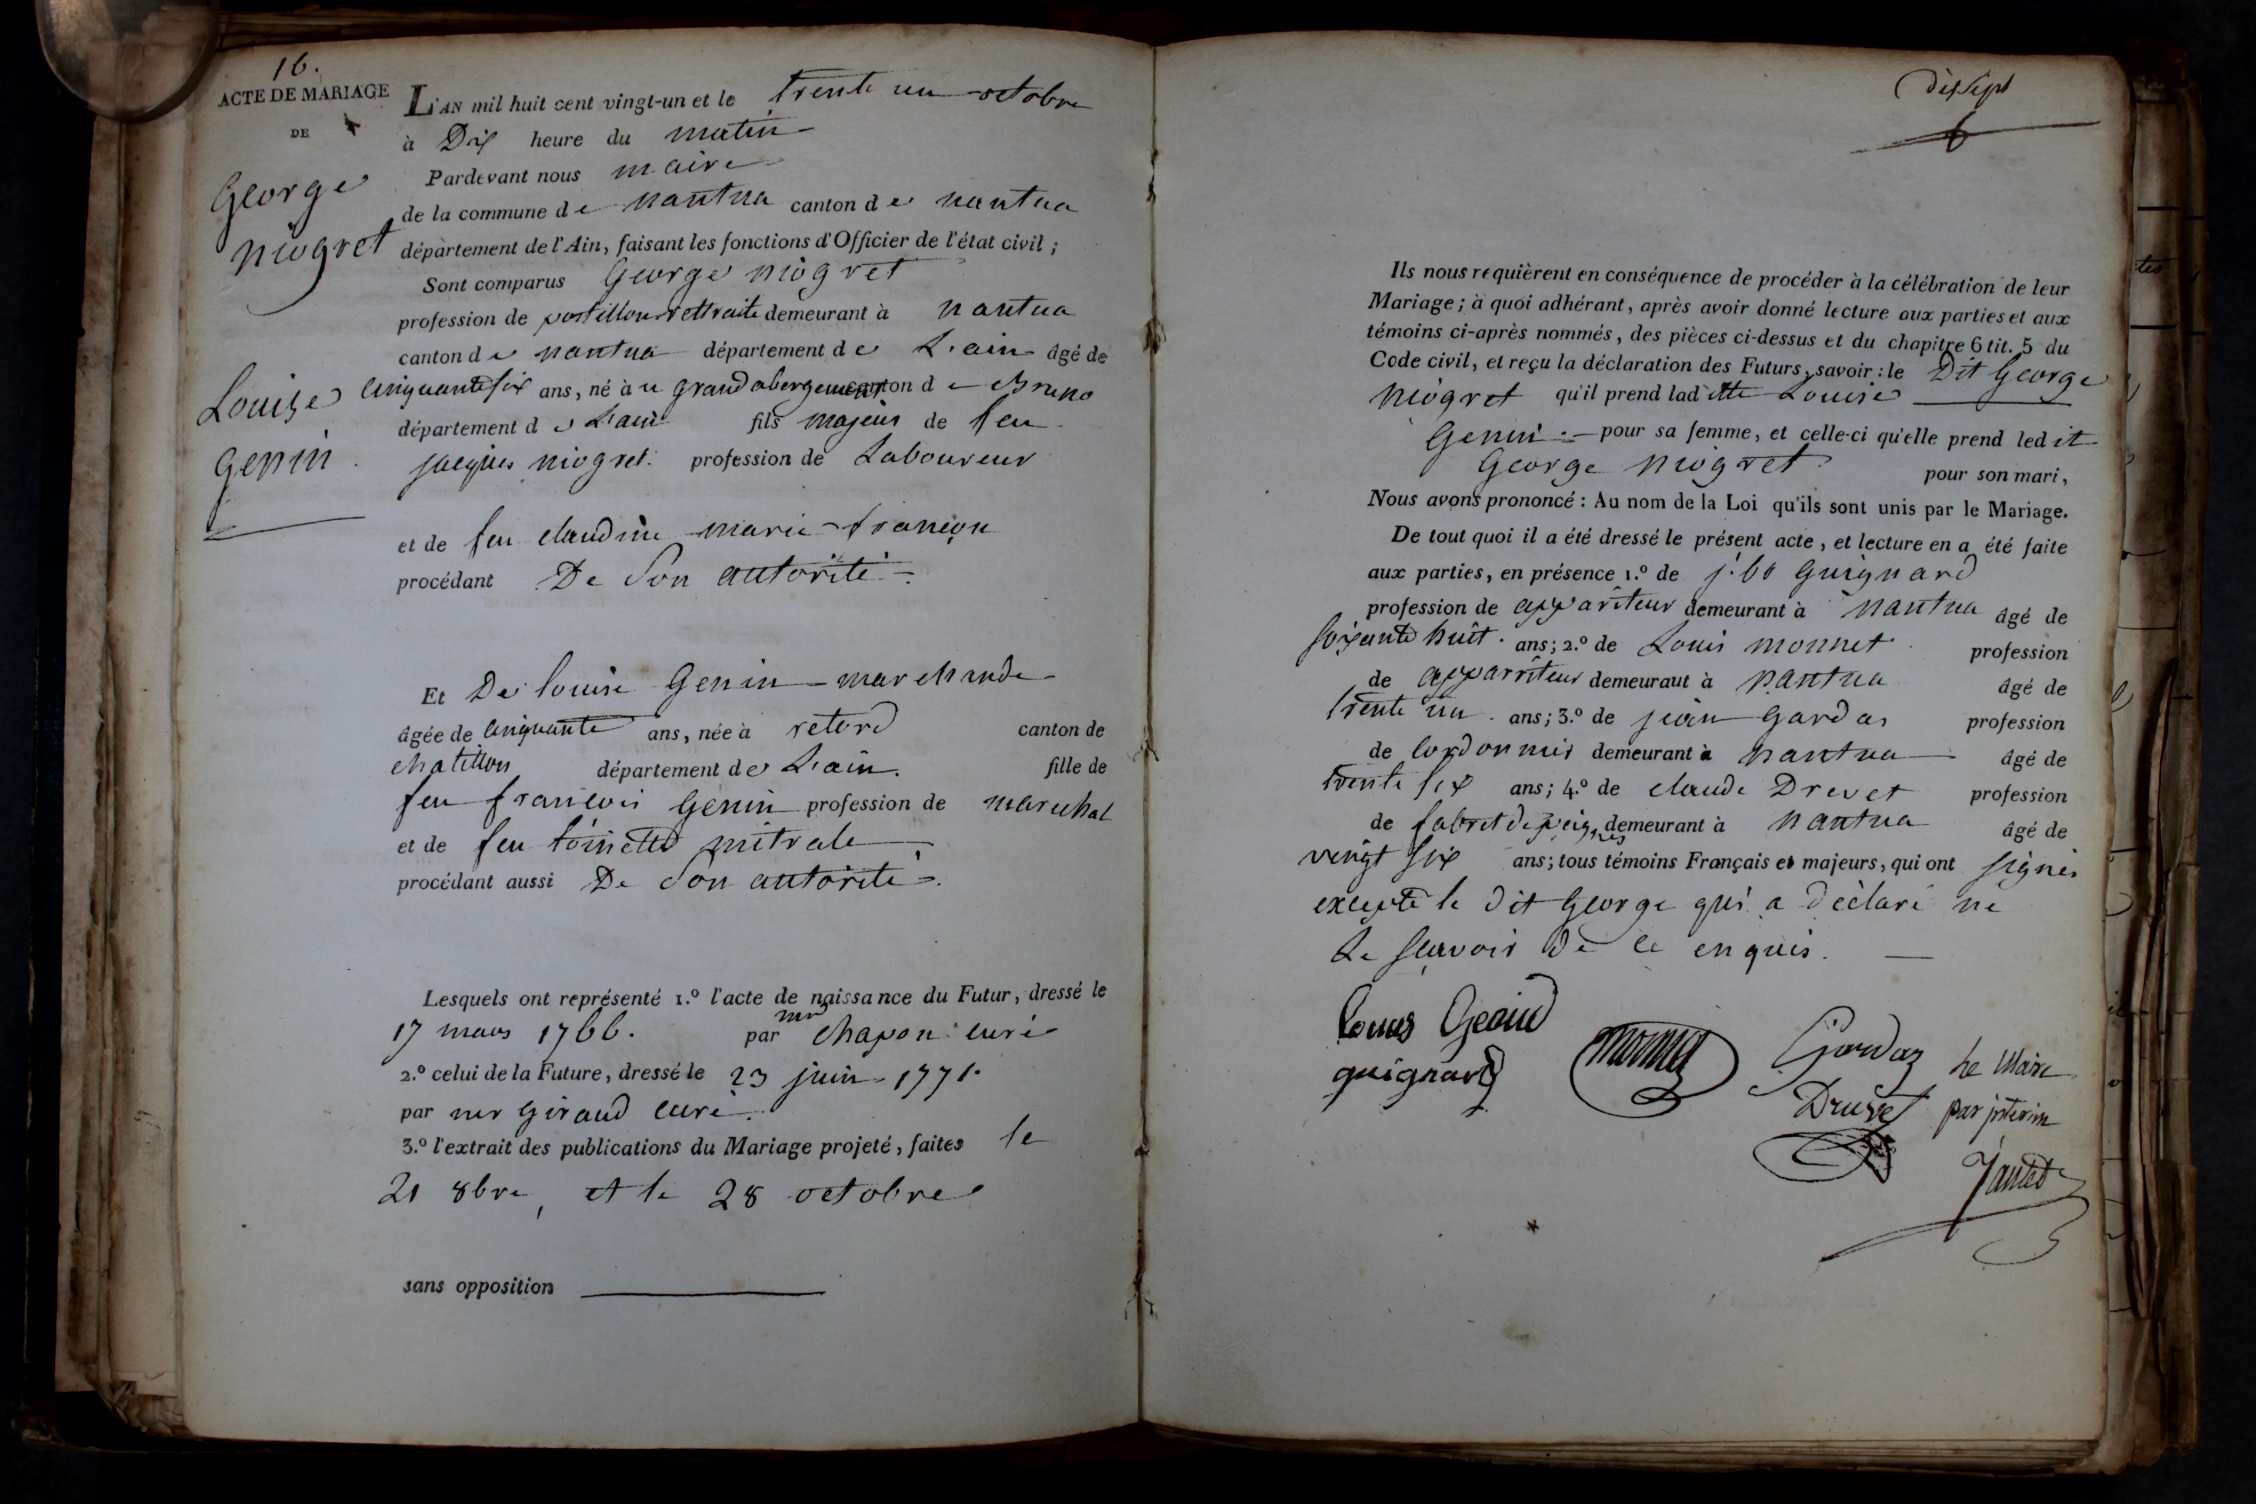 16.
ACTE DE MARIAGE
DE
George
niogret
Louise
Genin
L'AN mil huit cent vingt-un et le trente un octobre
à Dix heure du matin
Pardevant nous maire
de la commune de nantua canton de nantua
département de l'Ain, faisant les fonctions d'Officier de l'état civil ;
Sont comparus George niogret
profession de postillon rettraite demeurant à nantua
canton de nantua département de L'ain âgé de
cinquante six ans, né à u grand abergement canton de Breno
département de L'ain fils majeur de feu
jacques niogret. profession de Laboureur
et de feu claudine marie françon
procédant De Son autorité.
Et De louise Genin marchande
âgée de cinquante ans, née à retord canton de
chatillon département de L'ain. fille de
feu francois Genin profession de marechal
et de feu toinette mitrale
procédant aussi De Son autorité.
Lesquels ont représenté 1.º l'acte de naissance du Futur, dressé le
17 mars 1766. par mr chapon curé
2.º celui de la Future, dressé le 23 juin 1771.
par mr Giraud curé.
3.º l'extrait des publications du Mariage projeté, faites le
21 8bre, et le 28 octobre
sans opposition
dixsept
Ils nous requièrent en conséquence de procéder à la célébration de leur
Mariage ; à quoi adhérant, après avoir donné lecture aux parties et aux
témoins ci-après nommés, des pièces ci-dessus et du chapitre 6 tit. 5 du
Code civil, et reçu la déclaration des Futurs, savoir : le Dit George
niogret qu'il prend ladite Louise
Genin. pour sa femme, et celle-ci qu'elle prend ledit
George niogret pour son mari,
Nous avons prononcé : Au nom de la Loi qu'ils sont unis par le Mariage.
De tout quoi il a été dressé le présent acte, et lecture en a été faite
aux parties, en présence 1.º de j. bte Guignard
profession de appariteur demeurant à nantua âgé de
soixante huit. ans ; 2.º de Louis monnet profession
de apparriteur demeuraut à nantua âgé de
trente un. ans ; 3.º de jean Gardas profession
de cordonnier demeurant à nantua âgé de
trente six ans ; 4.º de claude Drevet profession
de fabrct de peignes demeurant à nantua âgé de
vingt six ans ; tous témoins Français et majeurs, qui ont signés
excepté le dit George qui a déclaré ne
Le scavoir de ce enquis.
Louis
guignard
monnet
Gardaz
Druvet
Le Maire
par interim